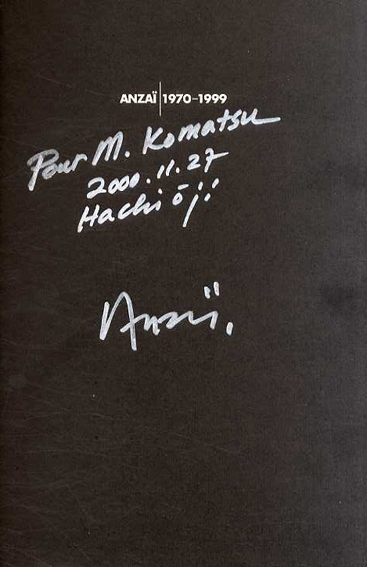 ANZAÏ 1970-1999
Pour M. Komatsu
2000.11.27
Hachiōji
Anzaï.